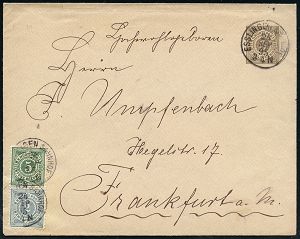 Hochwohlgeboren
Herrn
P. Umpfenbach
Hegelstr. 17
Frankfurt a. M.
ESSLINGEN
5